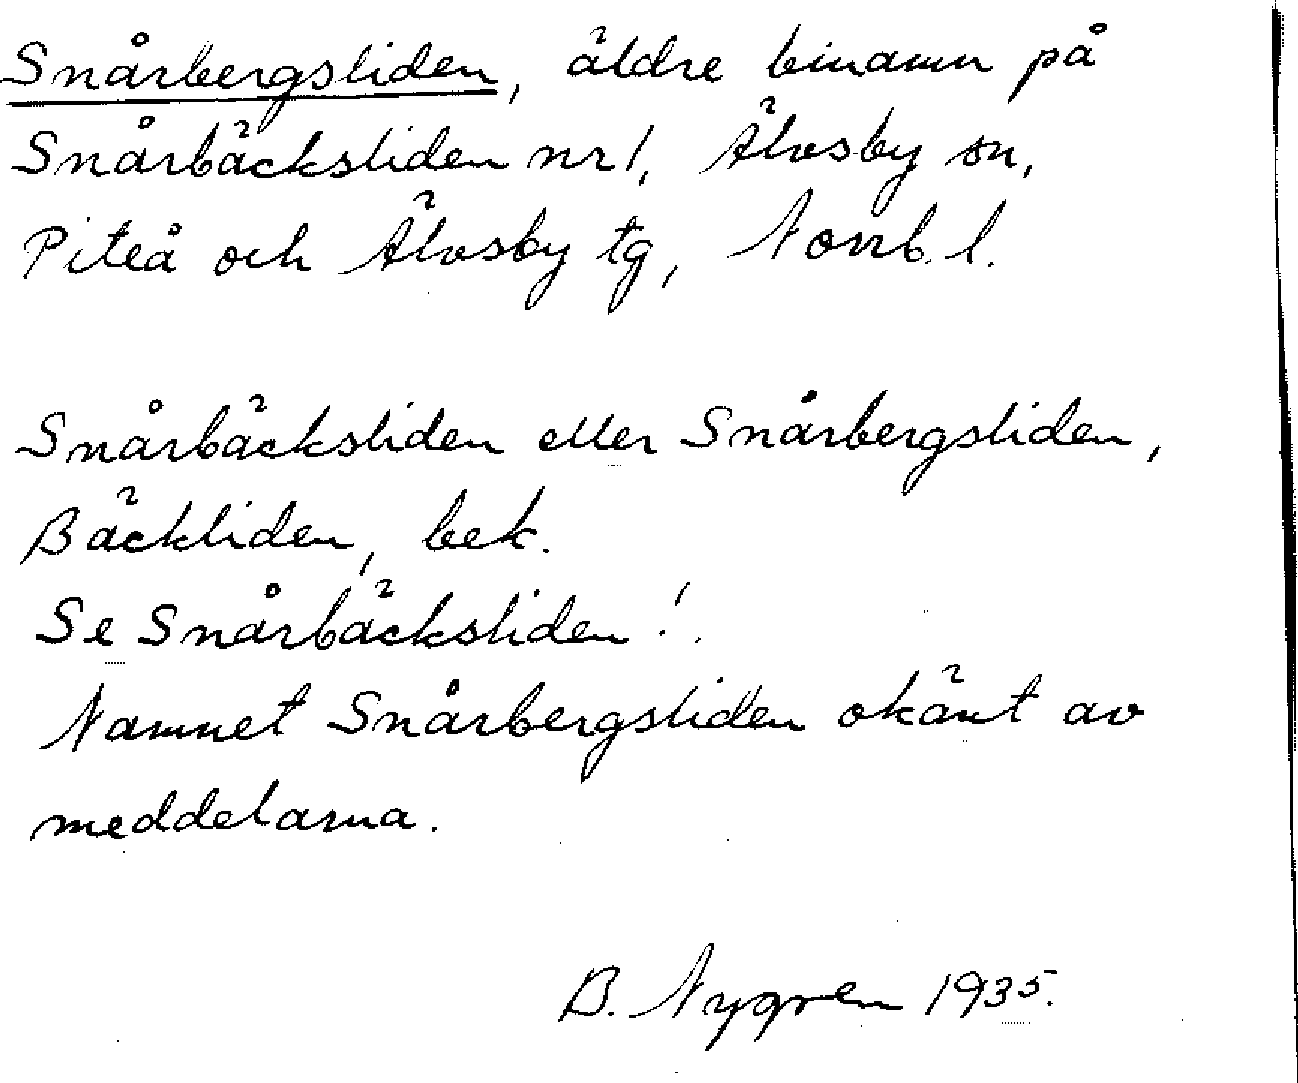 Snårbergsliden, äldre binamn på
Snårbäcksliden nr 1, Älvsby sn,
Piteå och Älvsby tg, Norrb. l.
Snårbäcksliden eller Snårbergsliden,
Bäckliden, bek.
Se Snårbäcksliden!.
Namnet Snårbergsliden okänt av
meddelarna.
B. Nygren 1935.